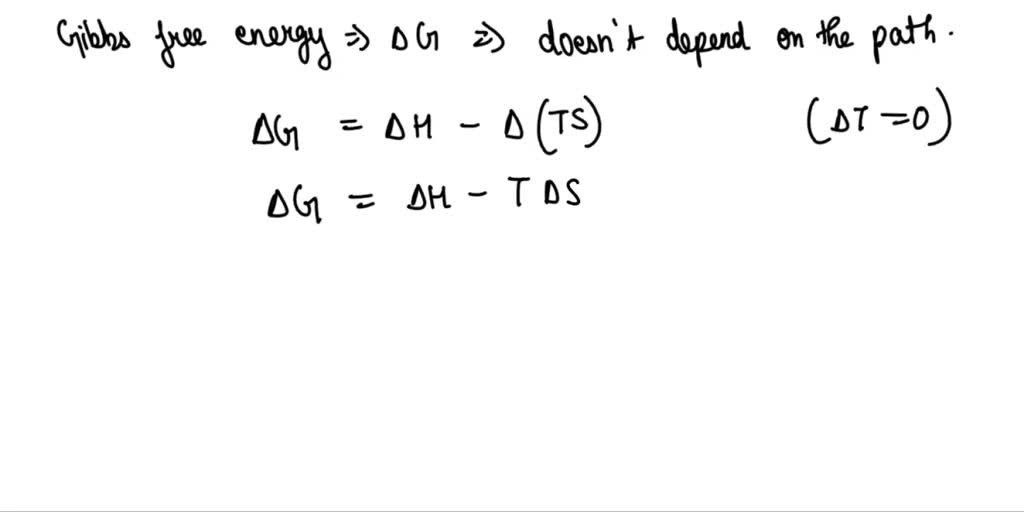 Gibbs free energy ⇒ ΔG ⇒ doesn't depend on the path.
ΔG = ΔH - Δ(TS) (ΔT = 0)
ΔG = ΔH - T ΔS